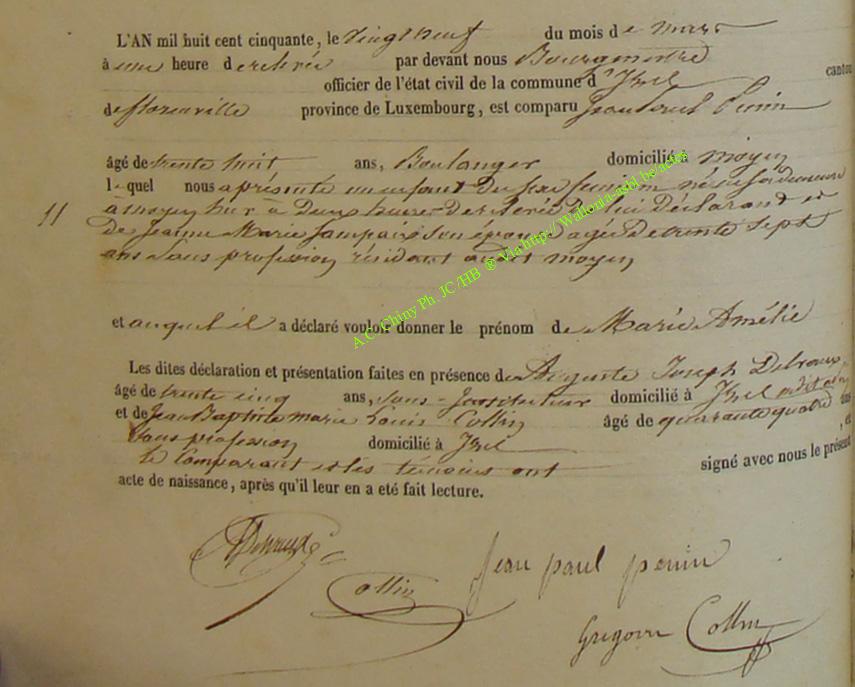 L'AN mil huit cent cinquante, le vingt neuf du mois de mars
à une heure de relevée par devant nous Bourgmestre
officier de l'état civil de la commune d'Izel canton
de florenville province de Luxembourg, est comparu Jean Paul Penin
âgé de trente huit ans, Boulanger domicilié à moyen
lequel nous a présenté un enfant du sexe féminin né en sa demeure
11 à moyen hier à Deux heures de relevée de lui Déclarand et
de Jeanne Marie Jampaix son épouse agée de trente sept
ans Sans profession résidant audit moyen
et auquel il a déclaré vouloir donner le prénom de Marie Amélie
Les dites déclaration et présentation faites en présence de Auguste Joseph Delvaux
âgé de trente cinq ans, sous-Instituteur domicilié à Izel
et de Jean Baptiste marie Louis Collin âgé de quarante quatre ans
Sans profession domicilié à Izel , et
le Comparant et les témoins ont signé avec nous le présent
acte de naissance, après qu'il leur en a eté fait lecture.
Collin
Jean paul penin
Gregoire Collin
A.C. Chiny Ph. JC/HB ® Via http://Wallonia-asbl.be/actes